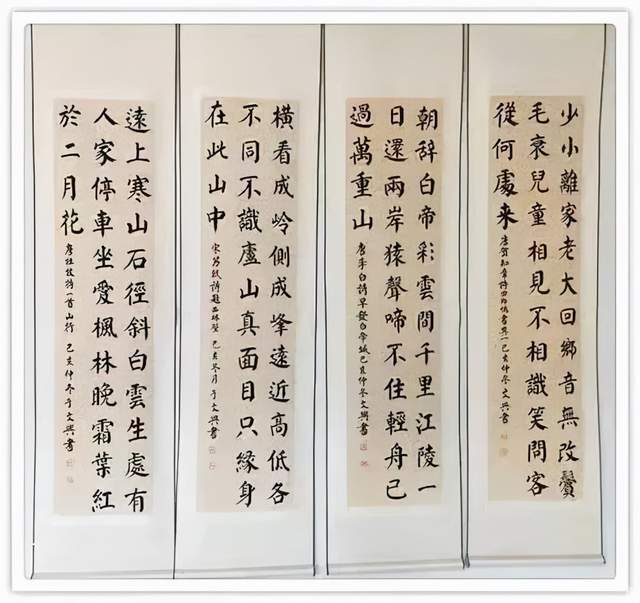 少小離家老大回鄉音無改鬢
毛衰兒童相見不相識笑問客
從何處来
唐賀知章詩回鄉偶書其一己亥仲冬文興書
朝辞白帝彩雲間千里江陵一
日還兩岸猿聲啼不住輕舟已
過萬重山
唐李白詩早發白帝城己亥仲冬文興書
橫看成岭側成峰遠近高低各
不同不識廬山真面目只緣身
在此山中
宋蘇軾詩題西林壁 己亥冬月于文興書
遠上寒山石徑斜白雲生處有
人家停車坐愛楓林晚霜葉紅
於二月花
唐杜牧詩一首山行 己亥仲冬于文興書